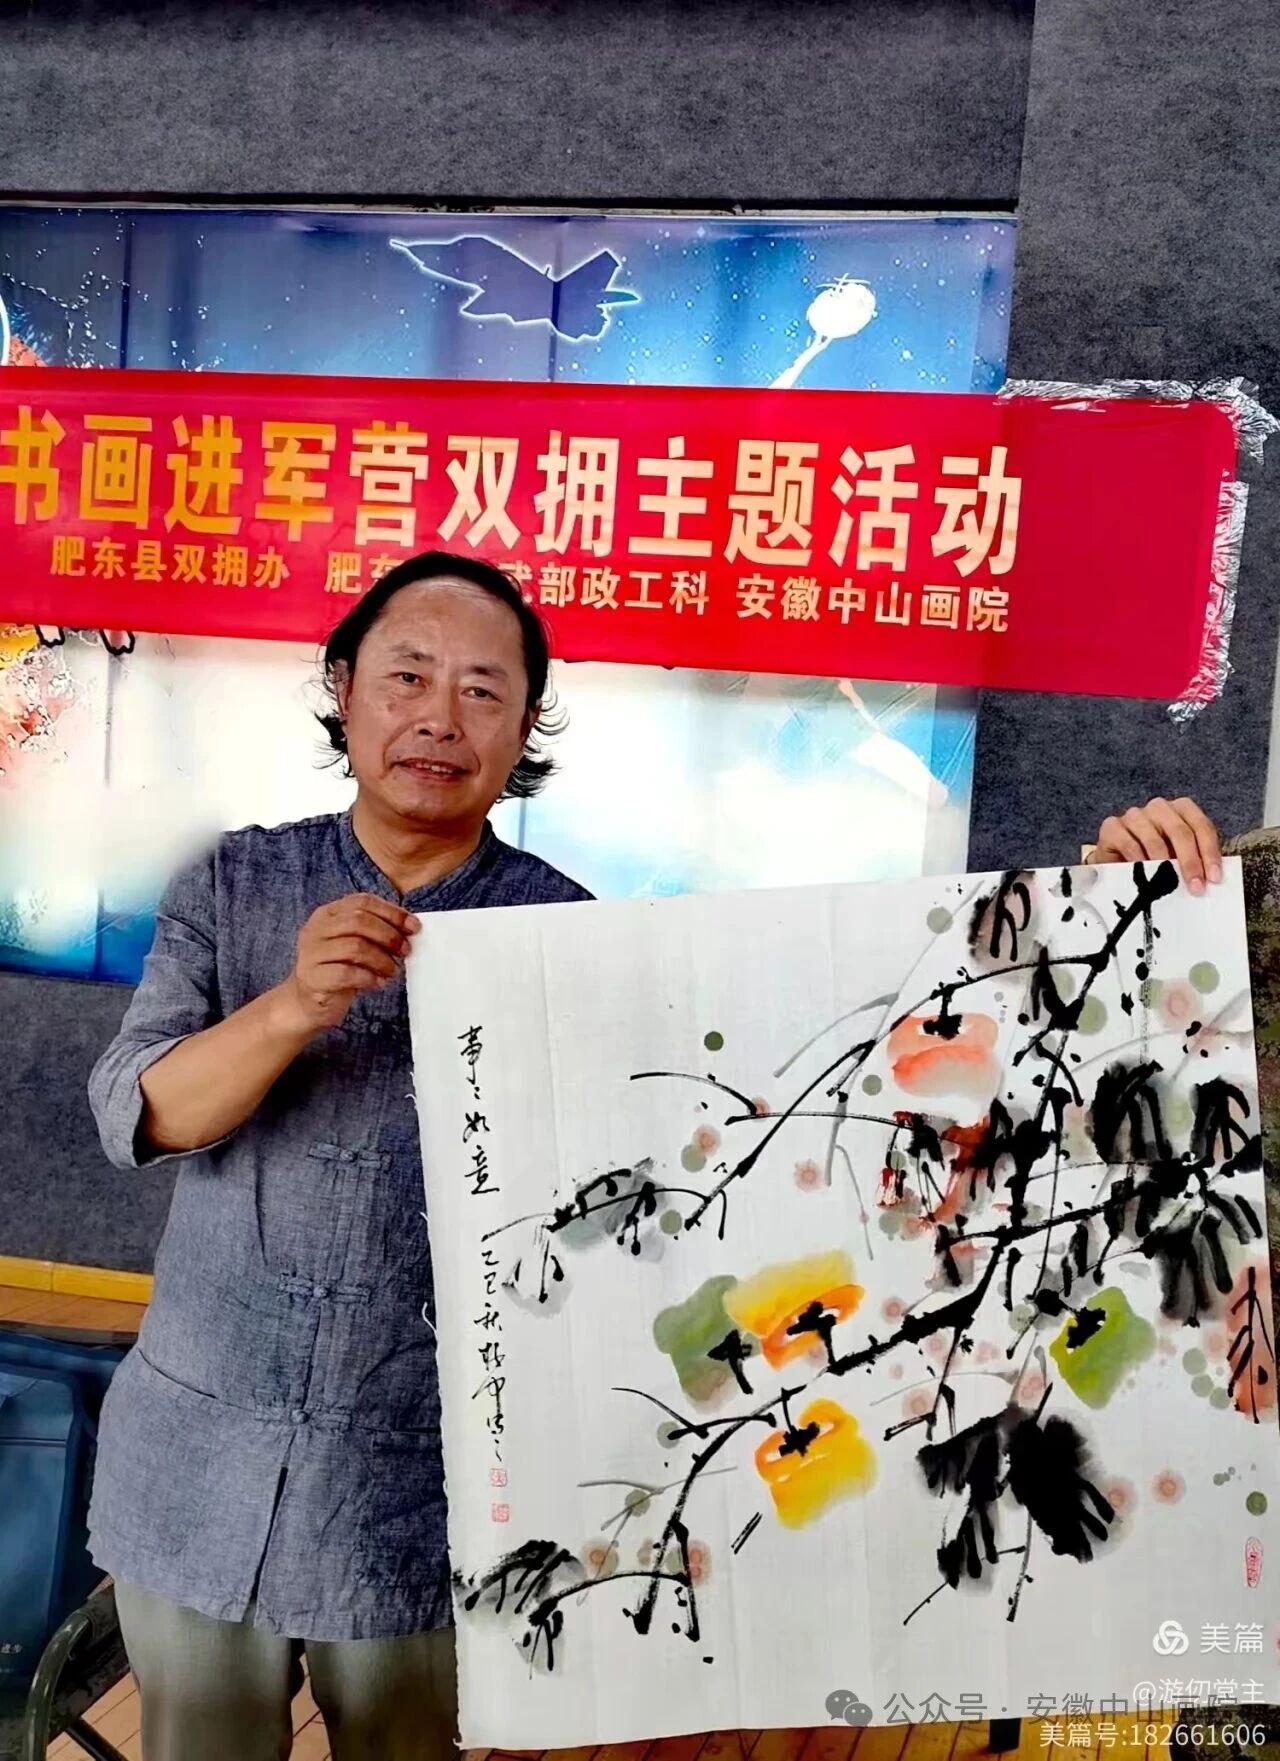 书画进军营双拥主题活动
肥东县双拥办 肥东 武部政工科 安徽中山画院
事〻如意
乙巳秋
进步
美篇
@游仞堂主
公众号·安徽中山画院
美篇号:182661606